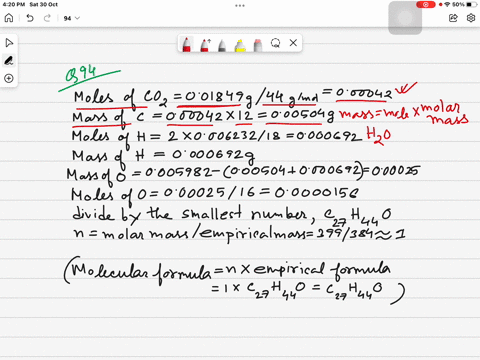 4:20 PM Sat 30 Oct
50%
94
Q94
Moles of CO2 = 0.01849g/44 g/mol = 0.00042
Mass of C = 0.00042×12 = 0.00504g mass=mole×molar mass
Moles of H = 2×0.006232/18 = 0.000692 H2O
Mass of H = 0.000692g
Mass of O = 0.005982-(0.00504+0.000692)=0.00025
Moles of O = 0.00025/16 = 0.0000156
divide by the smallest number, C27H44O
n = molar mass/empirical mass = 399/384 ≈ 1
(Molecular formula = n × empirical formula
= 1 × C27H44O = C27H44O)